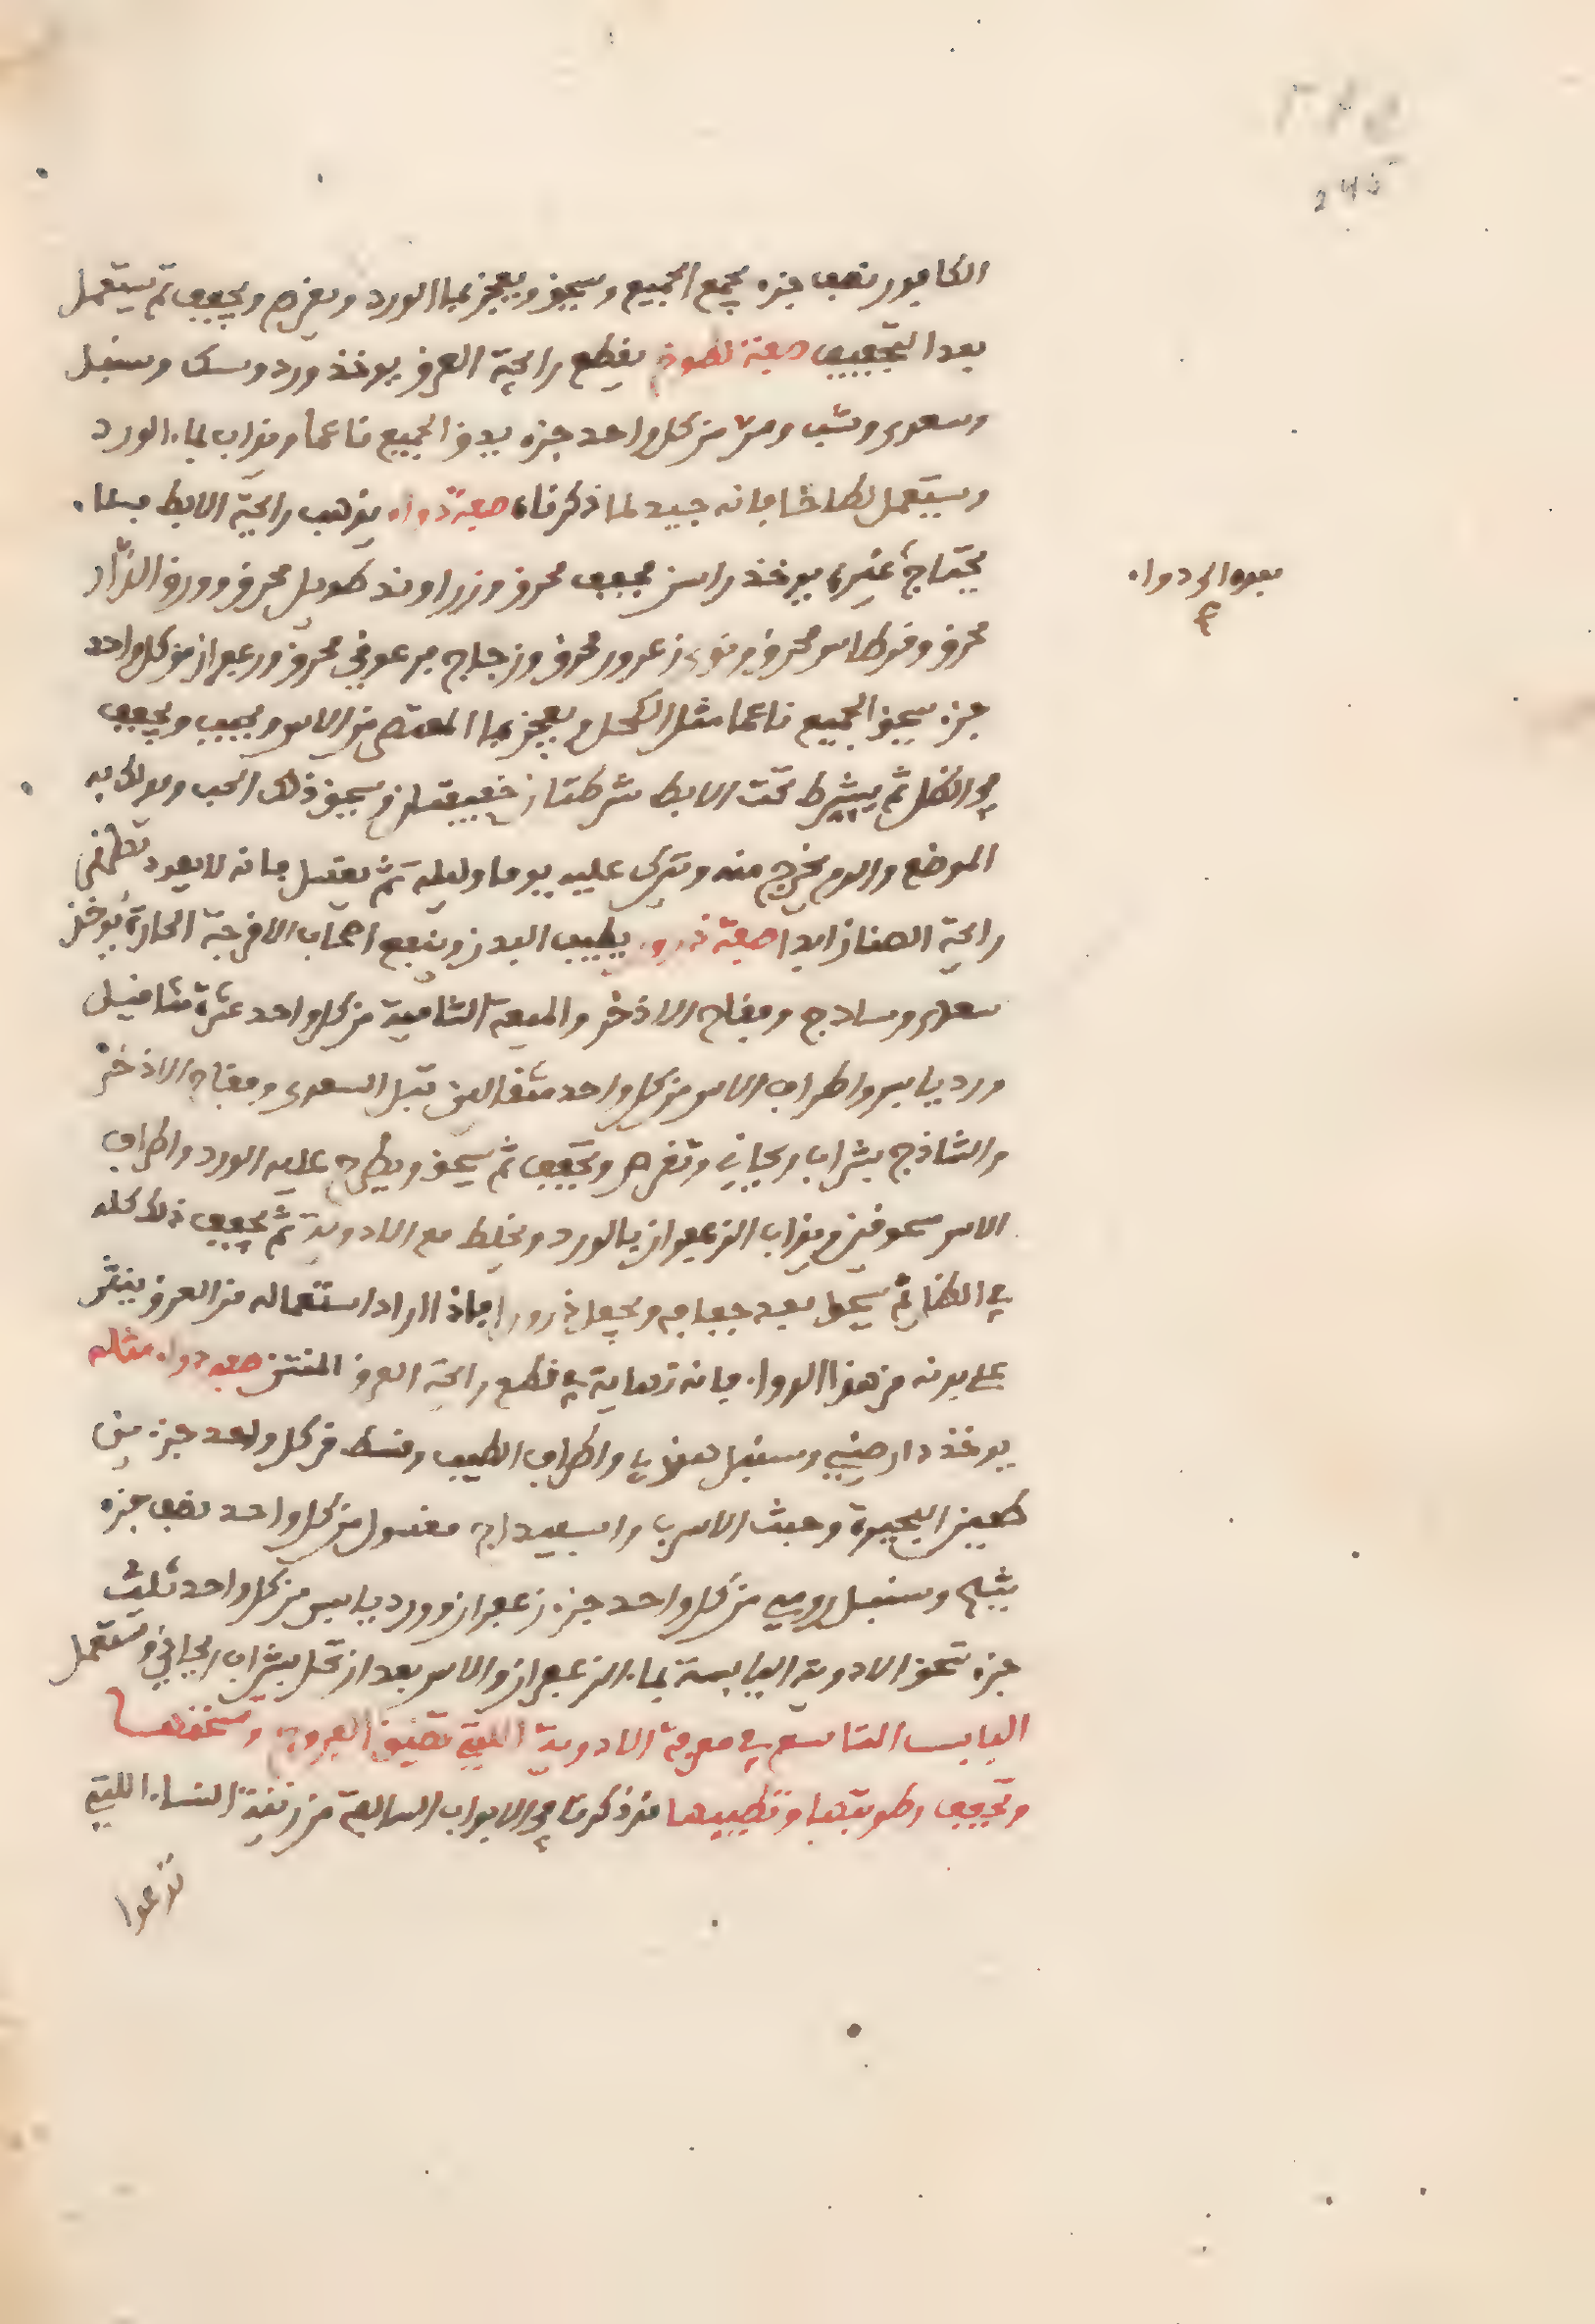 الكافور نصف جزء يجمع الجميع ويسحق ويعجن بماء الورد ويقرص ويجفف ثم يستعمل
بعد التجفيف صفة لطوخ يقطع رائحة العرق يوخذ ورد وسك وسنبل
وسعدى وشب ومر من كل واحد جزء يدق الجميع ناعما ويذاب بماء الورد
ويستعمل لطاخا فانه جيد لما ذكرناه صفة دواء يذهب رائحة الابط فلا
يحتاج غيره يوخذ راسن مجفف محرق وزراوند طويل محرق وورق
محرق وقرطاس محرق ونوى زعرور محرق وزجاج فرعوني محرق وزعفران من كل واحد
جزء يسحق الجميع ناعما مثل الكحل ويعجن بماء المعتصر من الاس ويحبب ويجفف
في الظل ثم يشرط تحت الابط شرطتان خفيفتان ويسحق ذلك الحب ويدلك به
الموضع والدم يخرج منه ويترك عليه يوما وليلة ثم يغسل فانه لا يعود
رائحة الصنان ابدا صفة ذرور يطيب البدن وينفع اصحاب الامزجة الحارة يوخذ
سعدى وسادج وفقاح الاذخر والميعة الشامية من كل واحد عشرة مثاقيل
ورد يابس واطراف الاس من كل واحد مثقالين تبل السعدى وفقاح الاذخر
والشاذج بشراب ريحاني وتقرص وتجفف ثم يسحق ويطرح عليه الورد واطراف
الاس مسحوقين ويذاب الزعفران بالورد ويخلط مع الادوية ثم يجفف ذلك كله
في الظل ثم يسحق بعد جفافه ويجعل ذرورا فاذا اراد استعماله من العرق ينثر
على بدنه من هذا الدواء فانه نهاية في قطع رائحة العرق المنتن صفة دواء مثله
يوخذ دارصيني وسنبل هندي واطراف الطيب وقسط من كل واحد جزء من
طين البحيرة وخبث الاسرب واسفيداج مغسول من كل واحد نصف جزء
وسنبل رومي من كل واحد جزء زعفران وورد يابس من كل واحد ثلث
جزء تسحق الادوية اليابسة بماء الزعفران والاس بعد ان تحل بشراب ريحاني وتستعمل
الباب التاسع في معرفة الادوية اللتي تضيق الفروج وتسخنها
وتجفف رطوبتها وتطيبها قد ذكرنا في الابواب السالفة من زينة النساء اللتي
تدعوا
بعده الى دواء